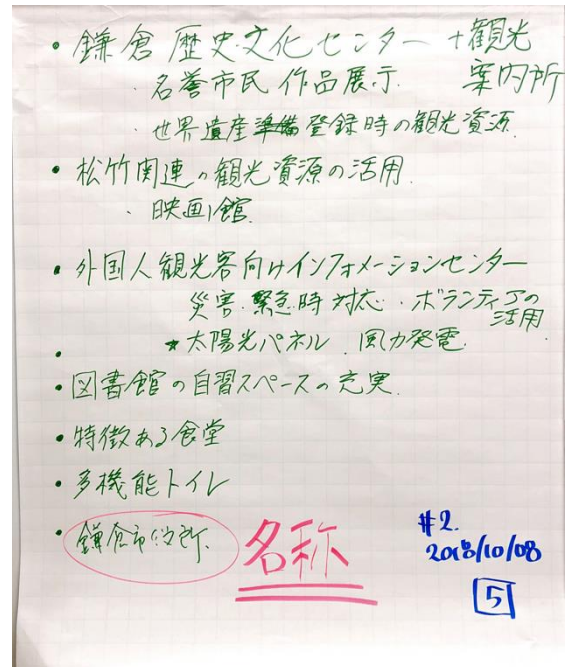 ・鎌倉歴史文化センター＋観光
案内所
・名誉市民作品展示
・世界遺産準備登録時の観光資源
・松竹関連の観光資源の活用
・映画館
・外国人観光客向けインフォメーションセンター
災害・緊急時対応・ボランティアの
活用
・★太陽光パネル・風力発電
・図書館の自習スペースの充実
・特徴ある食堂
・多機能トイレ
・鎌倉市役所
名称
#2.
2018/10/08
5